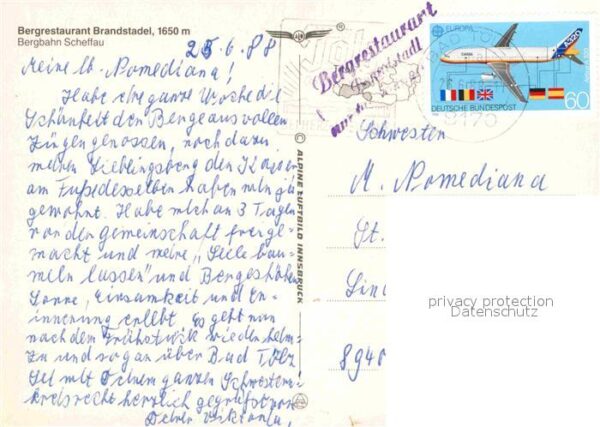 Bergrestaurant Brandstadel, 1650 m
Bergbahn Scheffau
25.6.88
Meine lb. Nomediana!
Habe die ganze Woche die
Schönheit der Berge aus vollen
Zügen genossen, noch dazu
meinen Lieblingsberg den Kaiser
am Fuße desselben haben wir
gewohnt. Habe mich an 3 Tagen
von der Gemeinschaft freige-
macht und meine „Seele bau-
meln lassen" und Bergeshöhen
Sonne, Einsamkeit und Er-
innerung erlebt. Es geht nun
nach dem Frühstück wieder heim-
zu und sogar über Bad Tölz
Sei mit Deinem ganzen Schwestern-
kreis recht herzlich gegrüßt von
Deiner Viktoria.
ALPINE LUFTBILD INNSBRUCK
Bergrestaurant
EUROPA
A320
DEUTSCHE BUNDESPOST
60
Schwester
M. Nomediana
St.
Lin
8940
privacy protection
Datenschutz